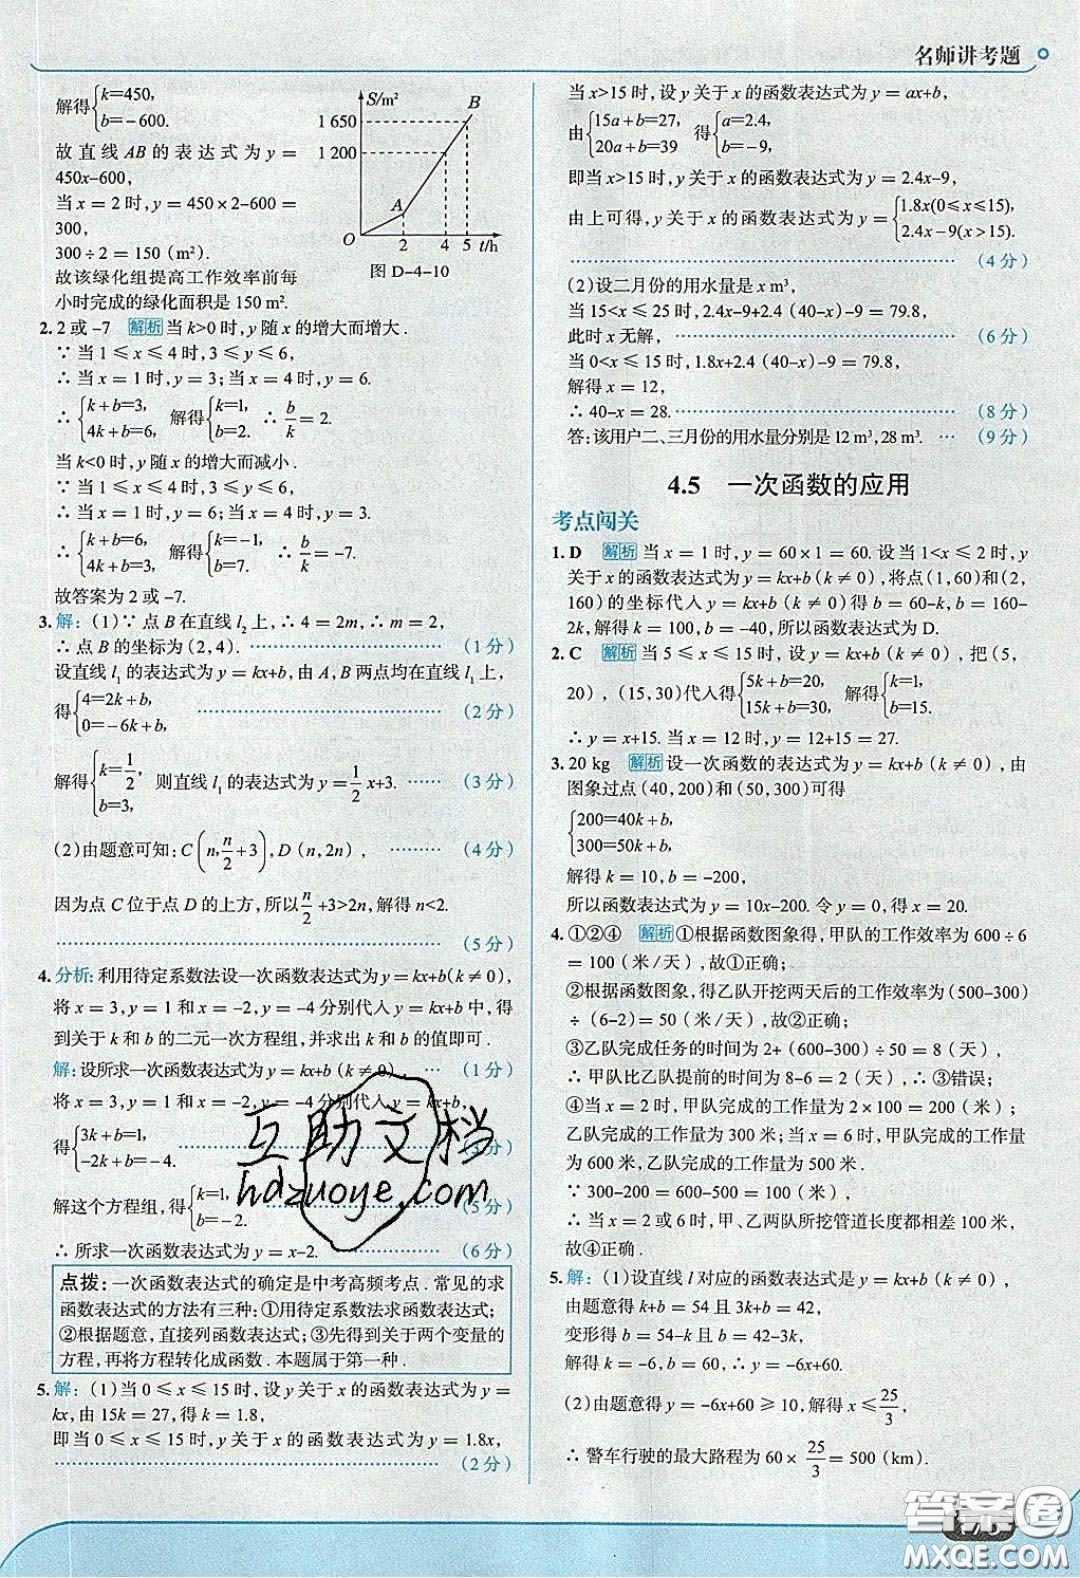 名师讲考题
解得{k=450,
b=-600.
故直线 AB 的表达式为 y =
450x-600,
当 x = 2 时, y = 450×2-600 =
300,
300÷2 = 150 (m²).
故该绿化组提高工作效率前每
小时完成的绿化面积是 150 m².
S/m²
B
1 650
1 200
A
O
2 4 5 t/h
图 D-4-10
2. 2 或 -7 解析 当 k>0 时, y 随 x 的增大而增大.
∵ 当 1 ⩽ x ⩽ 4 时, 3 ⩽ y ⩽ 6,
∴ 当 x = 1 时, y = 3; 当 x = 4 时, y = 6.
∴ {k+b=3, 4k+b=6, 解得{k=1, b=2. ∴ b/k = 2.
当 k<0 时, y 随 x 的增大而减小.
∵ 当 1 ⩽ x ⩽ 4 时, 3 ⩽ y ⩽ 6,
∴ 当 x = 1 时, y = 6; 当 x = 4 时, y = 3.
∴ {k+b=6, 4k+b=3, 解得{k=-1, b=7. ∴ b/k = -7.
故答案为 2 或 -7.
3. 解: (1)∵ 点 B 在直线 l₂ 上, ∴ 4 = 2m, ∴ m = 2,
∴ 点 B 的坐标为 (2, 4). (1 分)
设直线 l₁ 的表达式为 y = kx+b, 由 A, B 两点均在直线 l₁ 上,
得{4=2k+b, 0=-6k+b, (2 分)
解得{k=1/2, b=3, 则直线 l₁ 的表达式为 y = 1/2 x+3. (3 分)
(2) 由题意可知: C(n, n/2+3), D (n, 2n), (4 分)
因为点 C 位于点 D 的上方, 所以 n/2+3>2n, 解得 n<2.
(5 分)
4. 分析: 利用待定系数法设一次函数表达式为 y = kx+b(k ≠ 0),
将 x = 3, y = 1 和 x = -2, y = -4 分别代入 y = kx+b 中, 得
到关于 k 和 b 的二元一次方程组, 并求出 k 和 b 的值即可.
解: 设所求一次函数表达式为 y = kx+b (k ≠ 0). … (1 分)
将 x = 3, y = 1 和 x = -2, y = -4 分别代入 y = kx+b,
得{3k+b=1, -2k+b=-4. (3 分)
解这个方程组, 得{k=1, b=-2. (5 分)
∴ 所求一次函数表达式为 y = x-2. (6 分)
点拨: 一次函数表达式的确定是中考高频考点. 常见的求
函数表达式的方法有三种: ①用待定系数法求函数表达式;
②根据题意, 直接列函数表达式; ③先得到关于两个变量的
方程, 再将方程转化成函数. 本题属于第一种.
5. 解: (1) 当 0 ⩽ x ⩽ 15 时, 设 y 关于 x 的函数表达式为 y =
kx, 由 15k = 27, 得 k = 1.8,
即当 0 ⩽ x ⩽ 15 时, y 关于 x 的函数表达式为 y = 1.8x,
(2 分)
当 x>15 时, 设 y 关于 x 的函数表达式为 y = ax+b,
由{15a+b=27, 20a+b=39 得{a=2.4, b=-9,
即当 x>15 时, y 关于 x 的函数表达式为 y = 2.4x-9,
由上可得, y 关于 x 的函数表达式为 y={1.8x(0⩽x⩽15), 2.4x-9(x>15).
(4 分)
(2) 设二月份的用水量是 x m³,
当 15<x ⩽ 25 时, 2.4x-9+2.4 (40-x)-9 = 79.8,
此时 x 无解, (6 分)
当 0<x ⩽ 15 时, 1.8x+2.4 (40-x)-9 = 79.8,
解得 x = 12,
∴ 40-x = 28. (8 分)
答: 该用户二、三月份的用水量分别是 12 m³, 28 m³. … (9 分)
4.5 一次函数的应用
考点闯关
1. D 解析 当 x = 1 时, y = 60×1 = 60. 设当 1<x ⩽ 2 时, y
关于 x 的函数表达式为 y = kx+b (k ≠ 0), 将点(1, 60)和(2,
160)的坐标代入 y = kx+b (k ≠ 0)得 b = 60-k, b = 160-
2k, 解得 k = 100, b = -40, 所以函数表达式为 D.
2. C 解析 当 5 ⩽ x ⩽ 15 时, 设 y = kx+b (k ≠ 0), 把 (5,
20), (15, 30)代入得{5k+b=20, 15k+b=30, 解得{k=1, b=15.
∴ y = x+15. 当 x = 12 时, y = 12+15 = 27.
3. 20 kg 解析 设一次函数的表达式为 y = kx+b (k ≠ 0), 由
图象过点 (40, 200)和(50, 300)可得
{200=40k+b,
300=50k+b,
解得 k = 10, b = -200,
所以函数表达式为 y = 10x-200. 令 y = 0, 得 x = 20.
4. ①②④ 解析 ①根据函数图象得, 甲队的工作效率为 600÷6
= 100 (米/天), 故①正确;
②根据函数图象, 得乙队开挖两天后的工作效率为 (500-300)
÷ (6-2) = 50 (米/天), 故②正确;
③乙队完成任务的时间为 2+ (600-300) ÷50 = 8 (天),
∴ 甲队比乙队提前的时间为 8-6 = 2 (天), ∴ ③错误;
④当 x = 2 时, 甲队完成的工作量为 2×100 = 200 (米),
乙队完成的工作量为 300 米; 当 x = 6 时, 甲队完成的工作量
为 600 米, 乙队完成的工作量为 500 米.
∵ 300-200 = 600-500 = 100 (米),
∴ 当 x = 2 或 6 时, 甲、乙两队所挖管道长度都相差 100 米,
故④正确.
5. 解: (1) 设直线 l 对应的函数表达式是 y = kx+b (k ≠ 0),
由题意得 k+b = 54 且 3k+b = 42,
变形得 b = 54-k 且 b = 42-3k,
解得 k = -6, b = 60, ∴ y = -6x+60.
(2) 由题意得 y = -6x+60 ⩾ 10, 解得 x ⩽ 25/3,
∴ 警车行驶的最大路程为 60× 25/3 = 500 (km).
互助文档
hdzuoye.com
答案圈
MXQE.COM